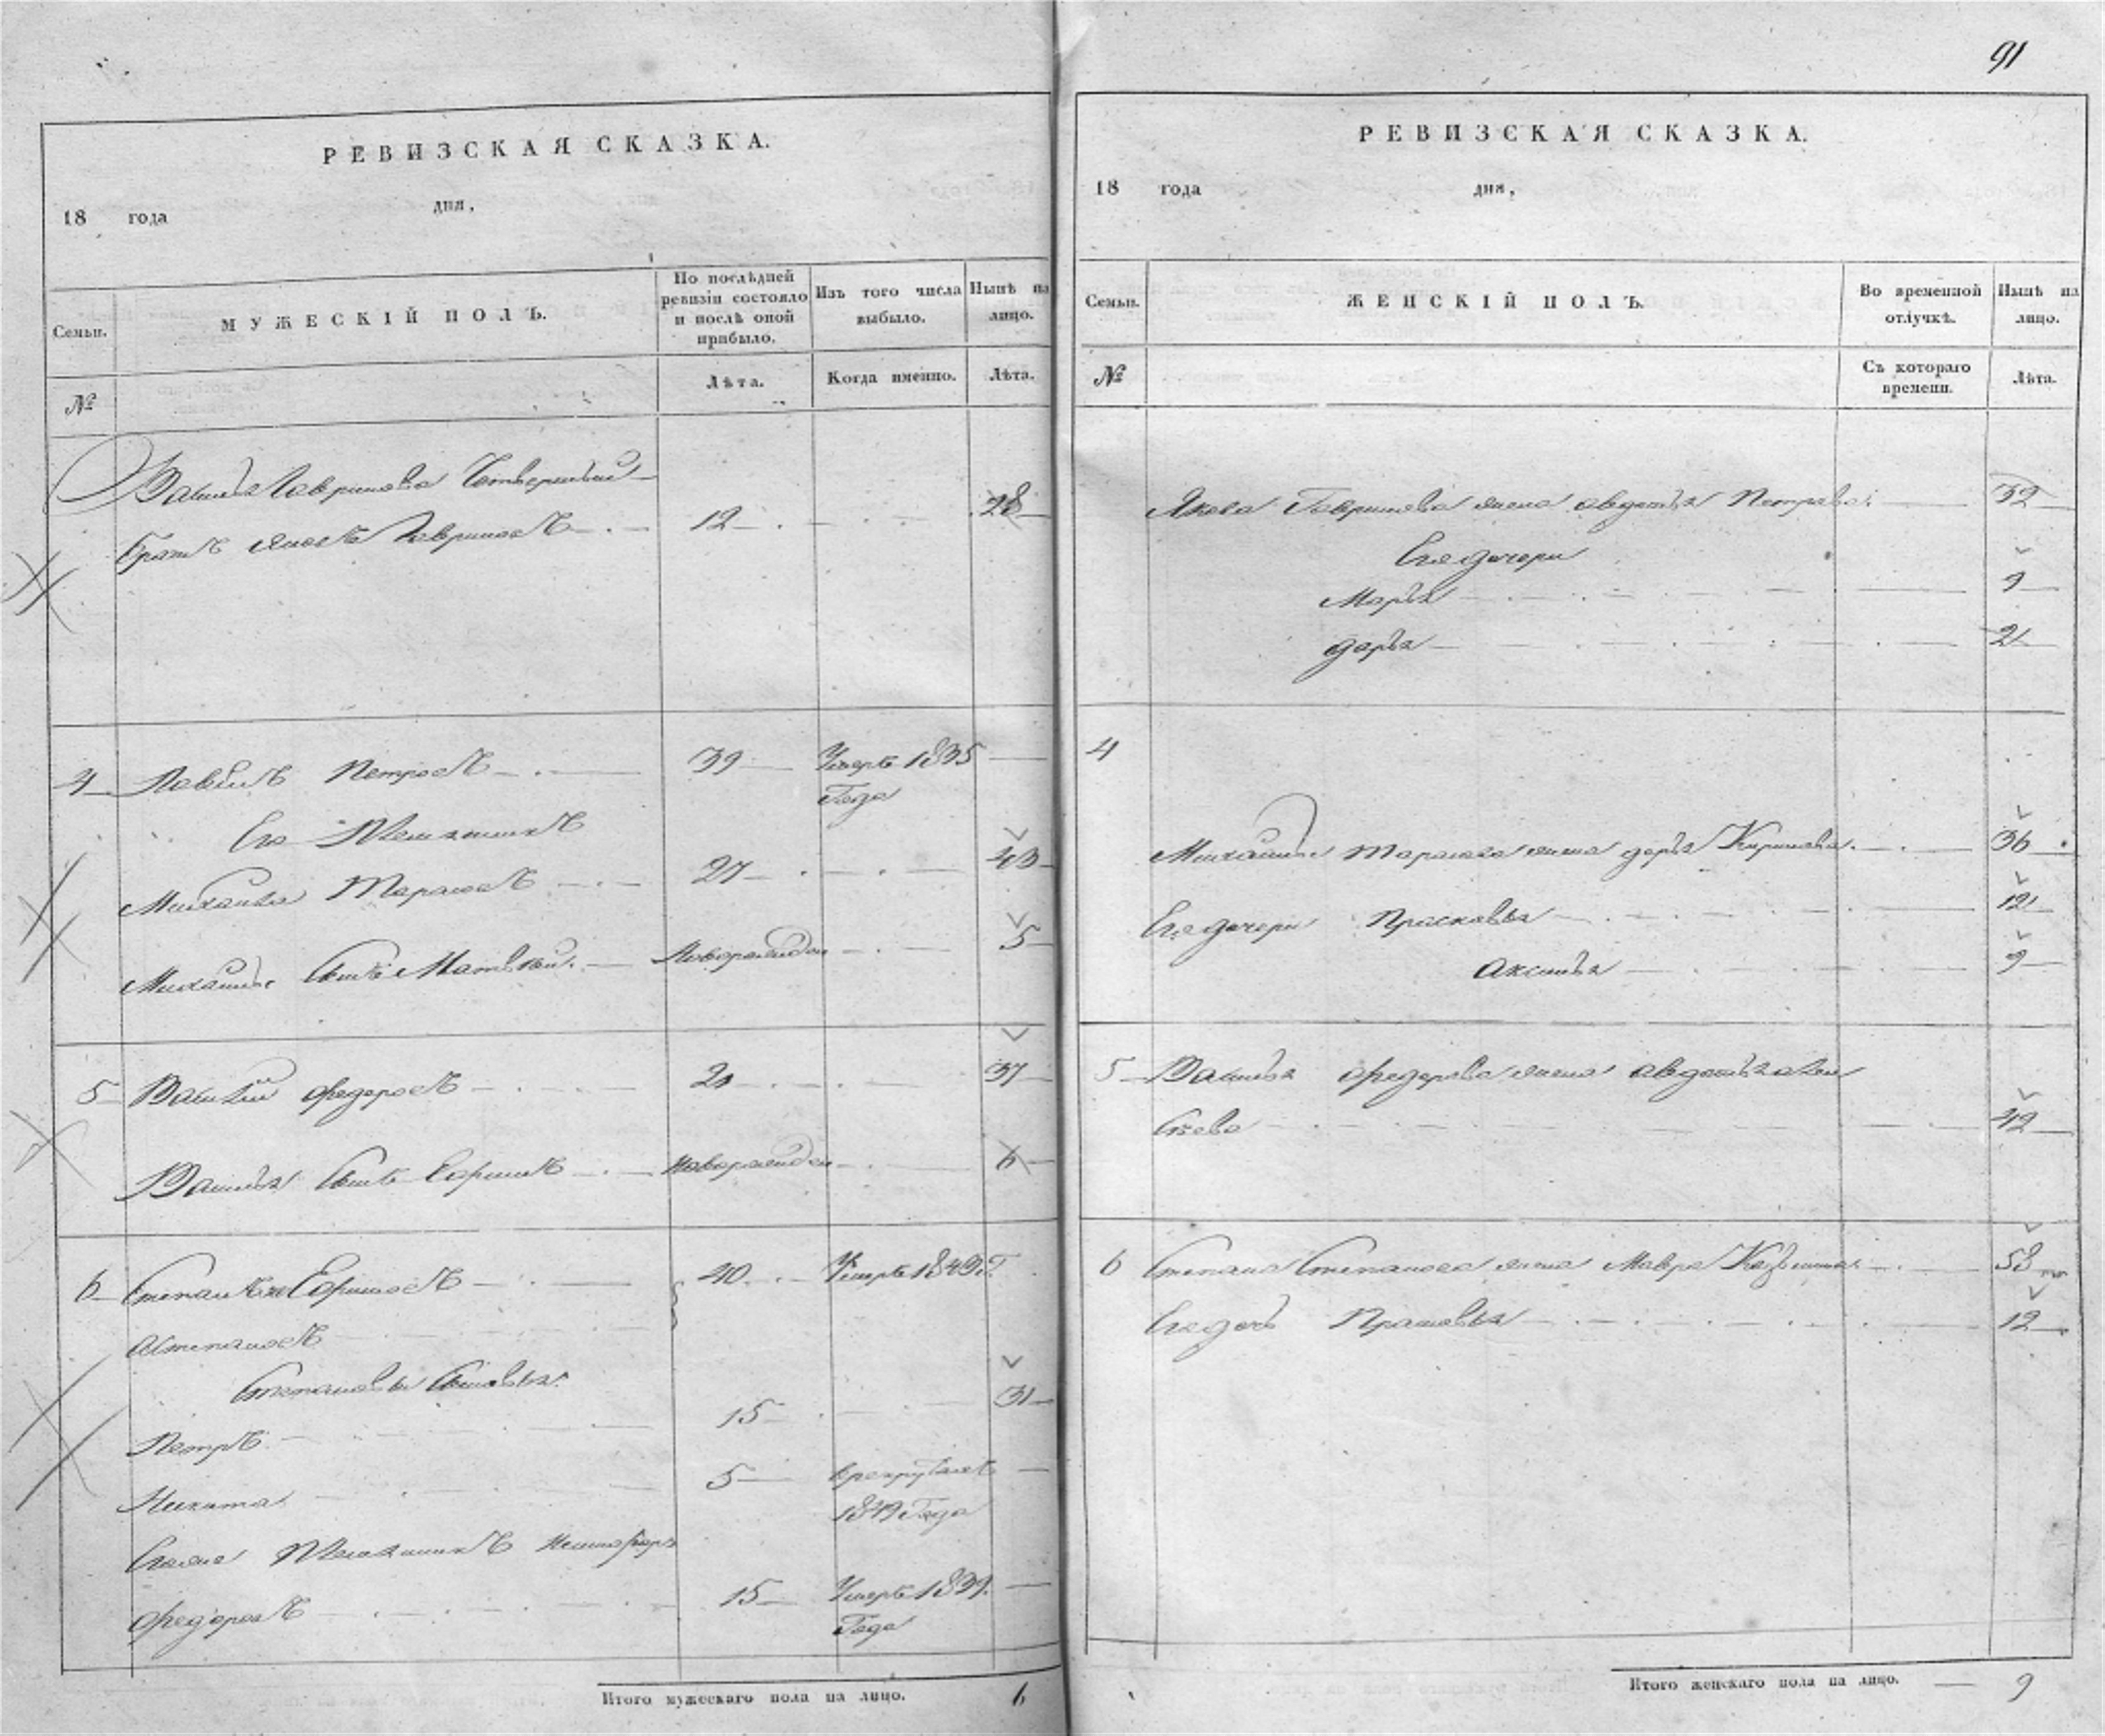 РЕВИЗСКАЯ СКАЗКА.
18 года дня,
Семьи.
МУЖЕСКІЙ ПОЛЪ.
По послѣдней ревизіи состояло и послѣ оной прибыло.
Изъ того числа выбыло.
Нынѣ на лицо.
№
Лѣта.
Когда именно.
Лѣта.
Василья Гаврилова Четвертый
братъ Яковъ Гавриловъ 12 28
4 Павелъ Петровъ 39 Умеръ 1835
Года
Его Племянникъ
Михаила Тарасовъ 27 43
Михаилы Сынъ Матвѣй. Новорожден 5
5 Василій Федоровъ 21 37
Василья Сынъ Ефимъ Новорожден 6
6 Степанъ 40 Умеръ 1849 Г.
Степановъ
Степановы Сыновья.
Петръ 15 31
Никита 5 в рекруты
1849 Года
Племянникъ Никифоръ
Федоровъ 15 Умеръ 1839.
Года
Итого мужескаго пола на лицо. 6
91
РЕВИЗСКАЯ СКАЗКА.
18 года дня,
Семьи.
ЖЕНСКІЙ ПОЛЪ.
Во временной отлучкѣ.
Нынѣ на лицо.
№
Съ котораго времени.
Лѣта.
Якова Гаврилова жена авдотья Петрова. 32
Его дочери
Марья 9
дарья 2
4
Михаилы тарасова жена дарья Кирилова. 36
Его дочери Прасковья 12
Аксинья 9
5 Василья Федорова жена авдотья Але
ксѣева 42
6 Степана Степанова жена Мавра 53
Его дочь Прасковья 12
Итого женскаго пола на лицо. 9